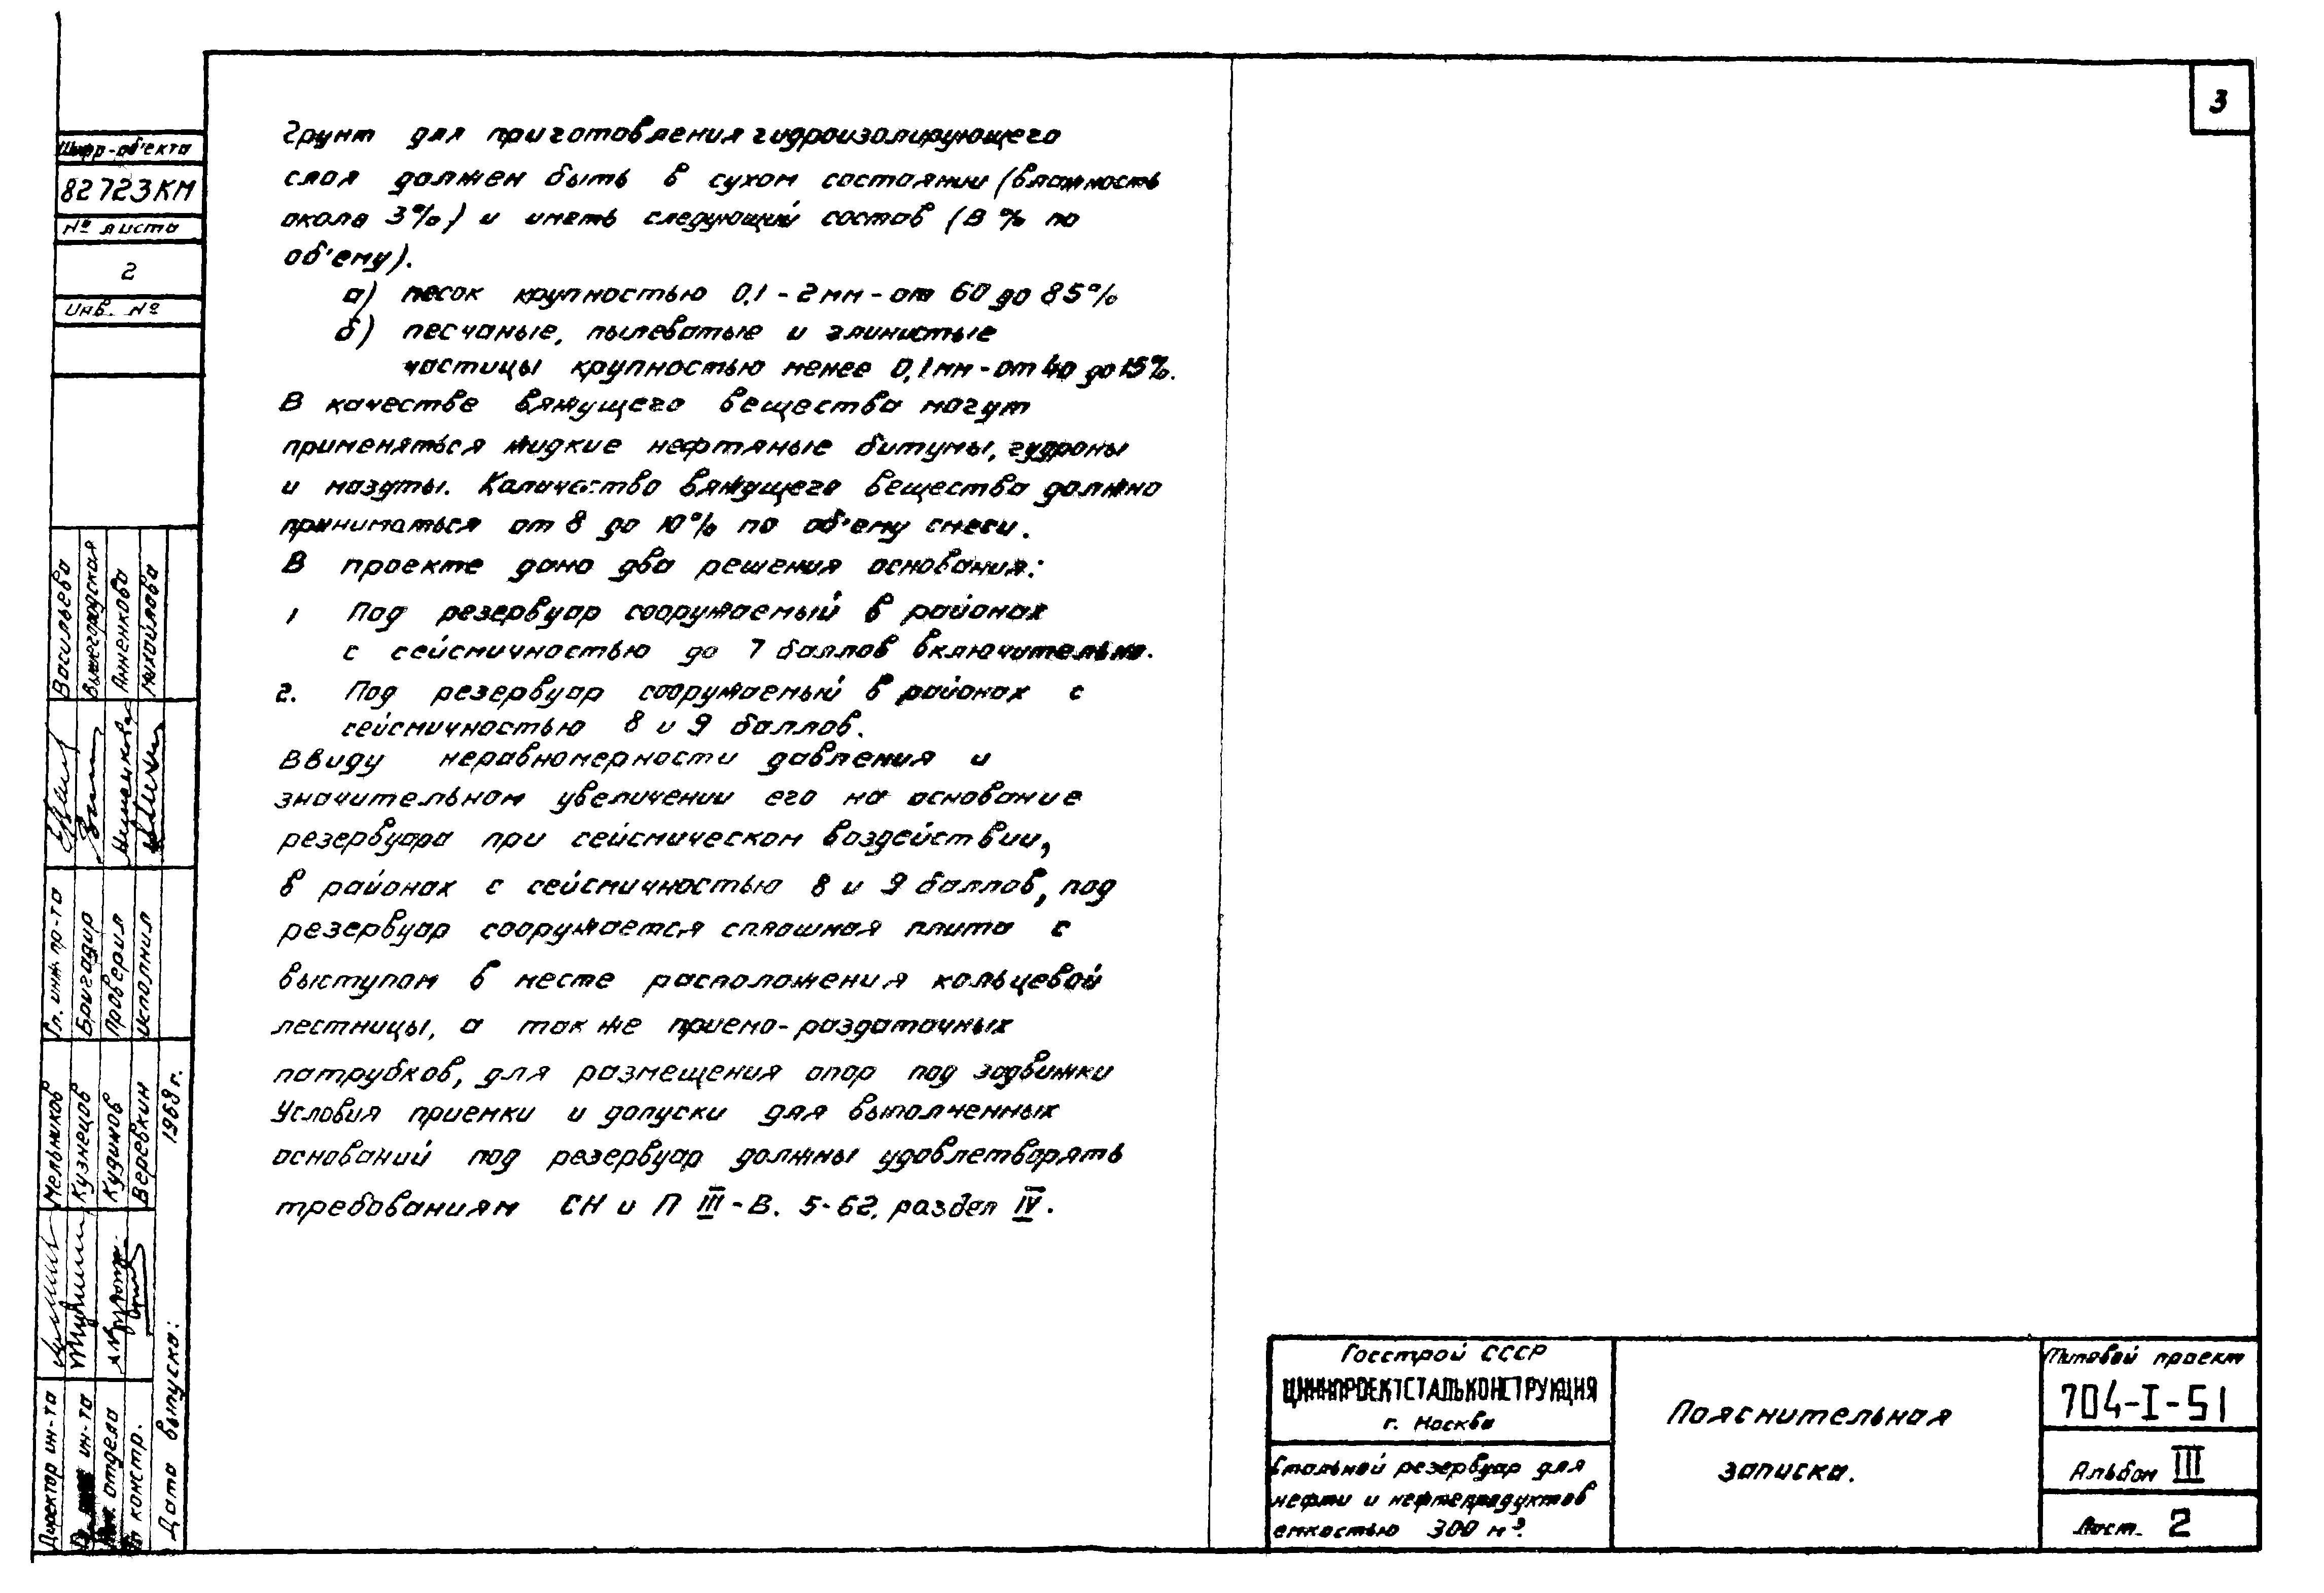 3
Шифр-об'екта
82723КМ
№ листа
2
Инв. №
Грунт для приготовления гидроизолирующего
слоя должен быть в сухом состоянии (влажность
около 3%) и иметь следующий состав (В % по
об'ему).
а) песок крупностью 0,1 - 2мм - от 60 до 85%
б) песчаные, пылеватые и глинистые
частицы крупностью менее 0,1мм - от 40 до 15%.
В качестве вяжущего вещества могут
применяться жидкие нефтяные битумы, гудроны
и мазуты. Количество вяжущего вещества должно
приниматься от 8 до 10% по об'ему смеси.
В проекте дано два решения основания:
1 Под резервуар сооружаемый в районах
с сейсмичностью до 7 баллов включительно.
2. Под резервуар сооружаемый в районах с
сейсмичностью 8 и 9 баллов.
Ввиду неравномерности давления и
значительном увеличении его на основание
резервуара при сейсмическом воздействии,
в районах с сейсмичностью 8 и 9 баллов, под
резервуар сооружается сплошная плита с
выступом в месте расположения кольцевой
лестницы, а так же приемо-раздаточных
патрубков, для размещения опор под задвижки
Условия приемки и допуски для выполненных
оснований под резервуар должны удовлетворять
требованиям СН и П III - В. 5-62, раздел IV.
Васильева
Вышегородская
Анненкова
Михайлова
Гл. инж. пр-та
Бригадир
Проверил
Исполнил
Мельников
Кузнецов
Кудинов
Веревкин
1968 г.
Директор ин-та
ин-та
отдела
констр.
Дата выпуска:
Госстрой СССР
ЦНИИПРОЕКТСТАЛЬКОНСТРУКЦИЯ
г. Москва
Стальной резервуар для
нефти и нефтепродуктов
емкостью 300 м³.
Пояснительная
записка.
Типовой проект
704-I-51
Альбом III
Лист. 2